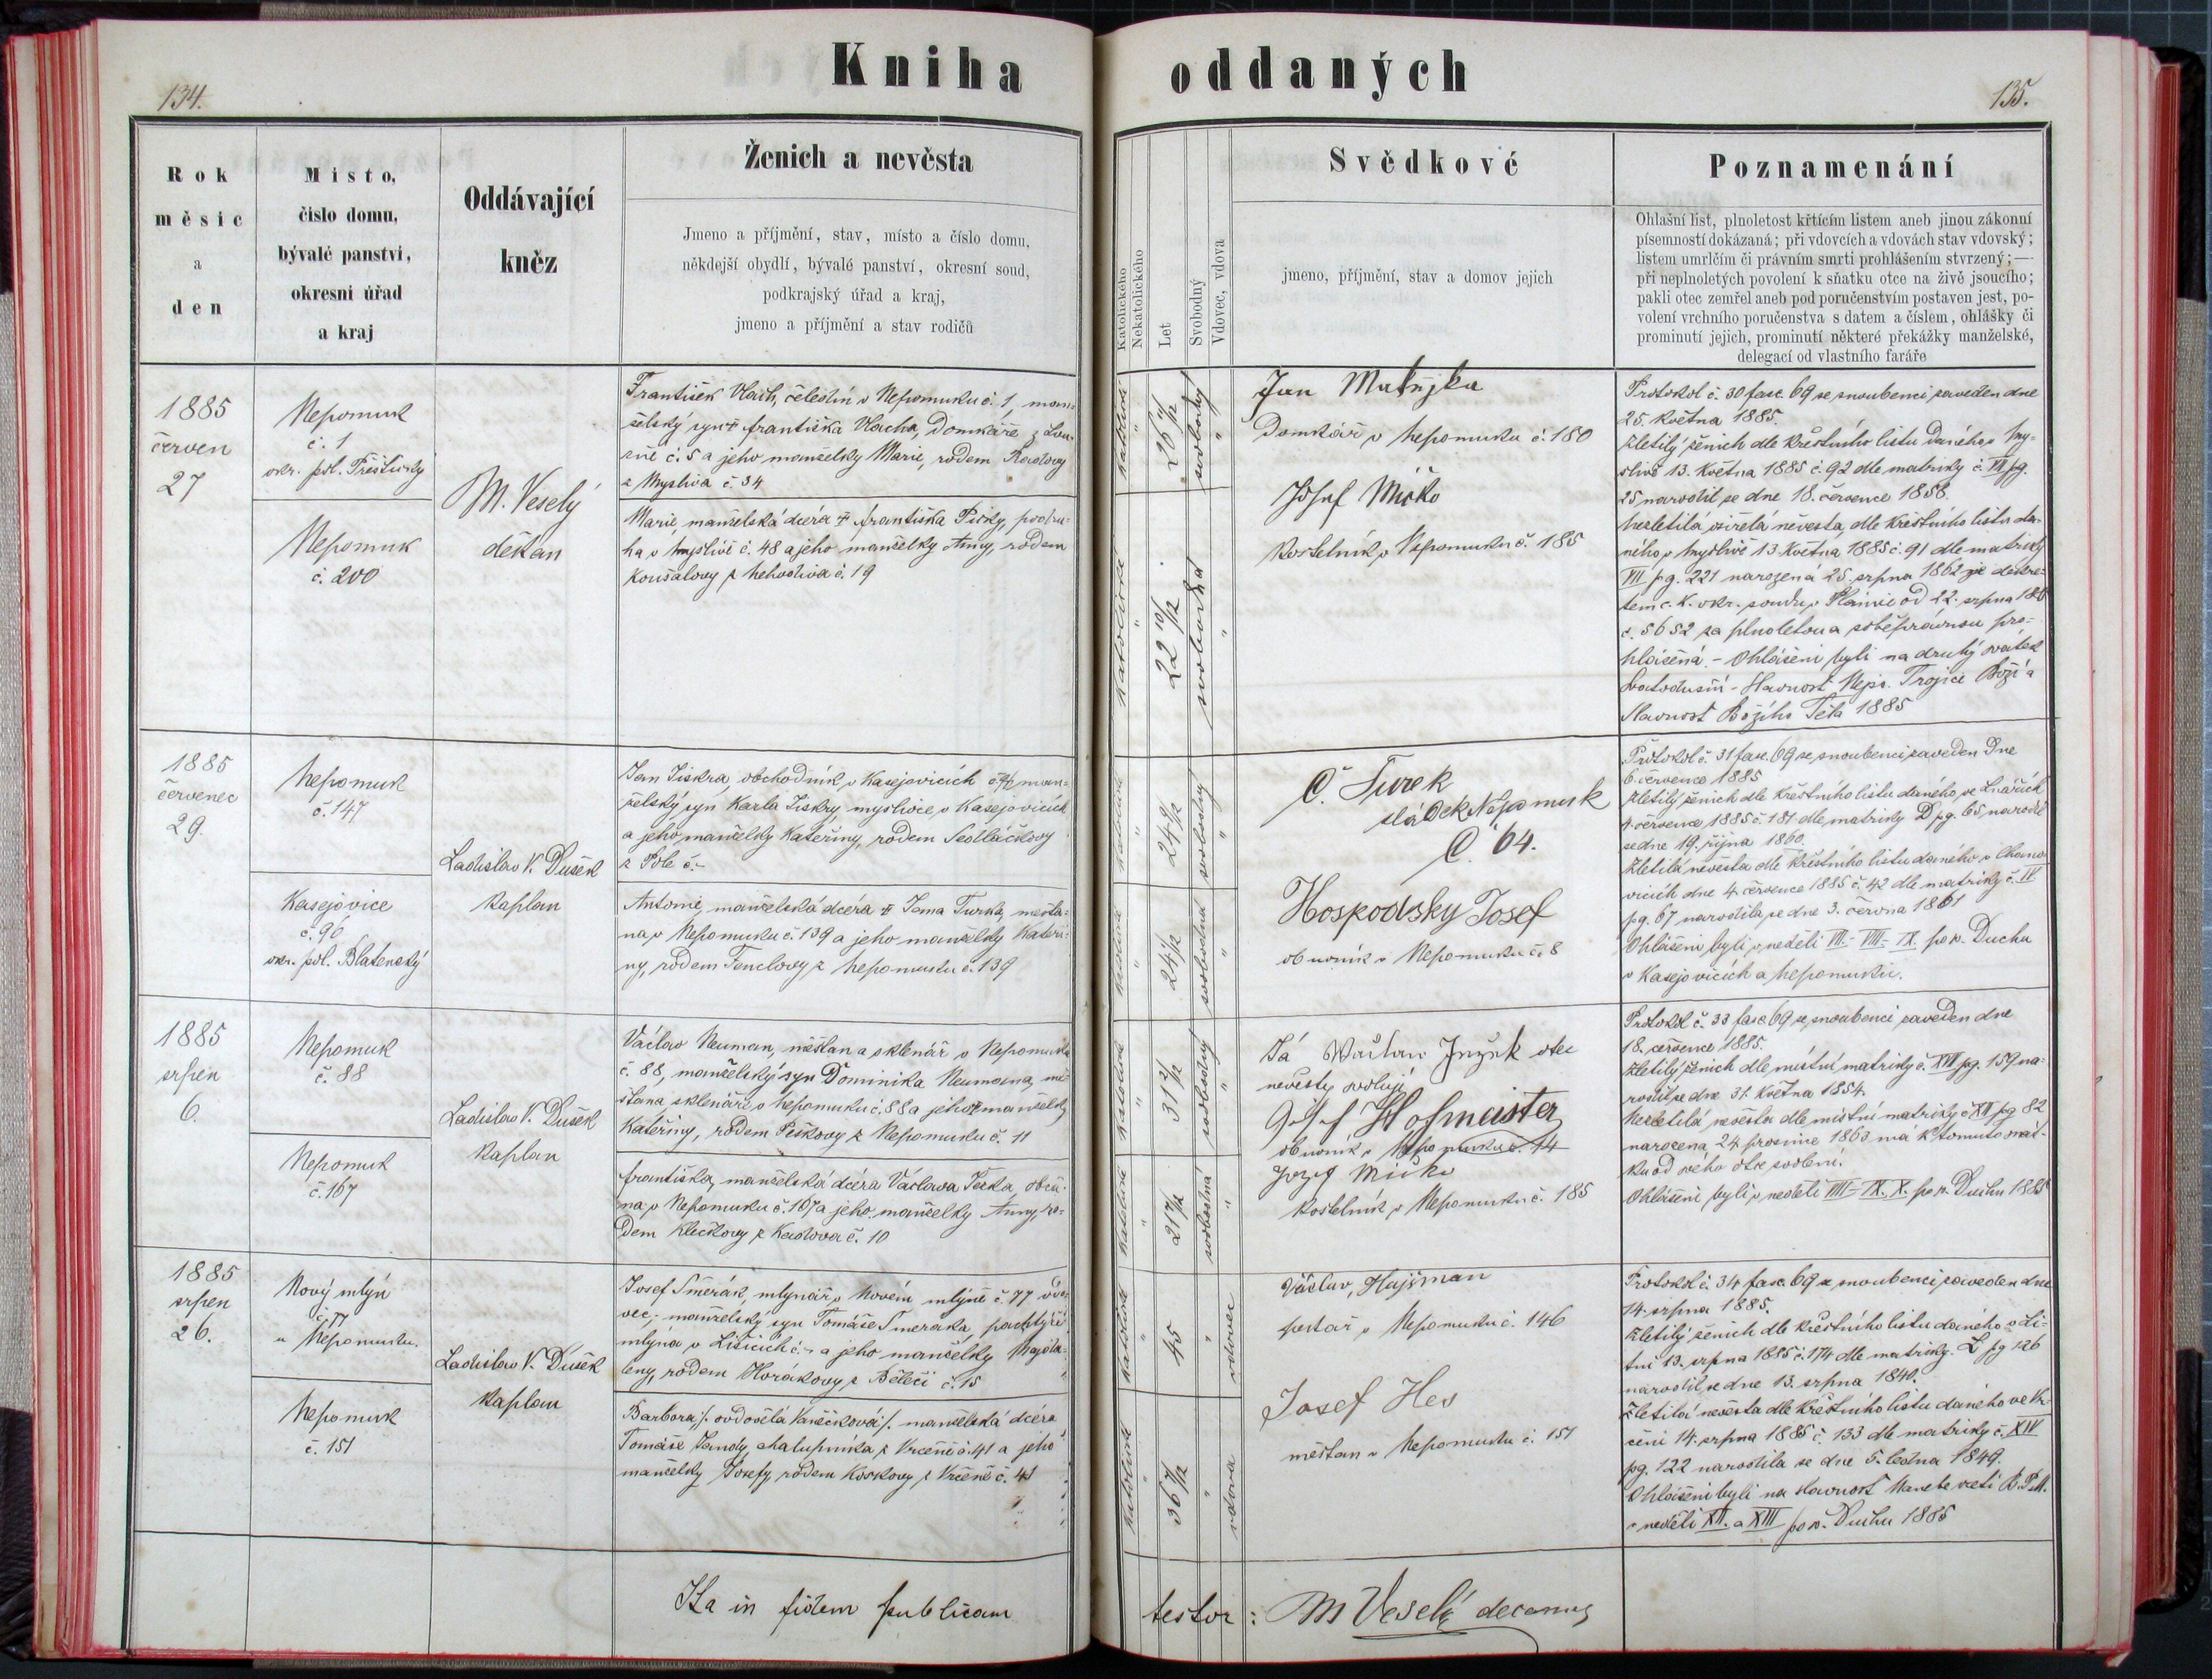 134.
Kniha
Rok
měsíc
a
den
Místo,
číslo domu,
bývalé panství,
okresní úřad
a kraj
Oddávající
kněz
Ženich a nevěsta
Jmeno a příjmění, stav, místo a číslo domu,
někdejší obydlí, bývalé panství, okresní soud,
podkrajský úřad a kraj,
jmeno a příjmění a stav rodičů
1885
červen
27
Nepomuk
č. 1
okr. pol. Přeštický
Nepomuk
č. 200
M. Veselý
děkan
František Vlach, čeledín v Nepomuku č. 1, man-
želský syn † Františka Vlacha, Domkáře z
č. 5 a jeho manželky Marie, rodem
z Myslíva č. 34
Marie, manželská dcéra † Františka Pícky, podru-
ha v Myslívě č. 48 a jeho manželky Anny, rodem
Koušalovy z Nehodiva č. 19
1885
červenec
29.
Nepomuk
č. 147
Kasejovice
č. 96
okr. pol. Blatenský
Ladislav V. Dušek
kaplan
Jan Jiskra, obchodník v Kasejovicích č. 96 man-
želský syn Karla Jiskry, myslivce v Kasejovicích
a jeho manželky Kateřiny, rodem Sedláčkovy
z Pole č. -
Antonie, manželská dcéra † Jana Turka, měšťa-
na v Nepomuku č. 139 a jeho manželky Kateři-
ny, rodem Fenclovy z Nepomuku č. 139
1885
srpen
6.
Nepomuk
č. 88
Nepomuk
č. 167
Ladislav V. Dušek
kaplan
Václav Neuman, měšťan a sklenář v Nepomuku
č. 88, manželský syn Dominika Neumana, mě-
šťana, sklenáře v Nepomuku č. 88 a jeho manželky
Kateřiny, rodem Peškovy z Nepomuku č. 11
Františka, manželská dcéra Václava
v Nepomuku č. 167 a jeho manželky Anny, ro-
dem Kličkovy z Kadova č. 10
1885
srpen
26.
Nový mlýn
č. 77
u Nepomuku.
Nepomuk
č. 151
Ladislav V. Dušek
kaplan
Josef Směrák, mlynář v Novém mlýně č. 77 vdo-
vec, manželský syn Tomáše Smeráka, pachtýře
mlýna v Lišicích č. - a jeho manželky Magda-
leny, rodem Horákovy z Bělčí č. 15
Barbora /: ovdovělá Vaněčková :/ manželská dcéra
Tomáše Jandy, chalupníka z Vrčeně č. 41 a jeho
manželky Josefy rodem Koskovy z Vrčeně č. 41
Ita in fidem publicam
135.
oddaných
Katolického
Nekatolického
Let
Svobodný
Vdovec, vdova
Svědkové
jmeno, příjmění, stav a domov jejich
Poznamenání
Ohlašní list, plnoletost křticím listem aneb jinou zákonní
písemností dokázaná; při vdovcích a vdovách stav vdovský;
listem umrlčím či právním smrti prohlášením stvrzený;—
při neplnoletých povolení k sňatku otce na živě jsoucího;
pakli otec zemřel aneb pod poručenstvím postaven jest, po-
volení vrchního poručenstva s datem a číslem, ohlášky či
prominutí jejich, prominutí některé překážky manželské,
delegací od vlastního faráře
katolické
26 11/12
svobodný
katolické
22 10/12
svobodná
Jan Matějka
Domkář v Nepomuku č. 180
Josef Mičko
Kostelník v Nepomuku č. 185
Protokol č. 30 fasc. 69 se snoubenci zaveden dne
25. května 1885.
Zletilý ženich dle křestního listu daného v My-
slivě 13. května 1885 č. 92 dle matriky č. VII pg.
25 narodil se dne 18. července 1858.
Nezletilá osiřelá nevěsta, dle křestního listu da-
ného v Myslívě 13. Května 1885 č. 91 dle matriky
VII pg. 221 narozená 25. srpna 1862 je dekre-
tem c. k. okr. soudu v Plánici od 22. srpna
č. 5652 za plnoletou a svéprávnou pro-
hlášená. - Ohlášeni byli na druhý svátek
Svatodušní - Slavnost Nejsv. Trojice Boží a
Slavnost Božího Těla 1885
katolické
24 9/12
svobodný
katolické
24 1/12
svobodná
Č. Turek
sládek Nepomuk
Č. 64.
Hospodsky Josef
obuvník v Nepomuku č. 8
Protokol č. 31 fasc. 69 se snoubenci zaveden dne
6. července 1885
Zletilý ženich dle křestního listu daného ve Lnářích
4. července 1885 č. 181 dle matriky D pg. 65 narodil
se dne 19. října 1860.
Zletilá nevěsta dle křestního listu daného v
dne 4. července 1885 č. 42 dle matriky č. IV
pg. 67 narodila se dne 3. června 1861
Ohlášeni byli v neděli VII. - VIII. - IX. po sv. Duchu
v Kasejovicích a Nepomuku.
katolické
31 2/12
svobodný
katolické
21 7/12
svobodná
Já Wáclav otec
nevěsty svoluji
Josef Hofmeister
obuvník v Nepomuku č. 14
Jozef Mičko
kostelník v Nepomuku č. 185
Protokol č. 33 fasc. 69 se snoubenci zaveden dne
18. července 1885.
Zletilý ženich dle místní matriky č. XVI pg. 159 na-
rodil se dne 31. května 1854.
Nezletilá nevěsta dle místní matriky č. XII pg 82
narozena 24 prosince 1863 má k tomuto sňat-
ku od svého otce svolení.
Ohlášeni byli v neděli VIII - IX. X. po sv. Duchu 1885
katolické
45
vdovec
katolické
36 7/12
vdova
Václav Hajšman
v Nepomuku č. 146
Josef Hes
měšťan v Nepomuku č. 151
Protokol č. 34 fasc. 69 se snoubenci zaveden dne
14. srpna 1885.
Zletilý ženich dle křestního listu daného v Li-
13. srpna 1885 č. 174 dle matriky L pg 126
narodil se dne 13. srpna 1840.
Zletilá nevěsta dle křestního listu daného ve Vr-
čeni 14. srpna 1885 č. 133 dle matriky č. XIV
pg. 122 narodila se dne 5. ledna 1849.
Ohlášeni byli na slavnost Nanebevzetí B. P. M.
v neděli XII. a XIII po sv. Duchu 1885
testor: M Veselý decanus